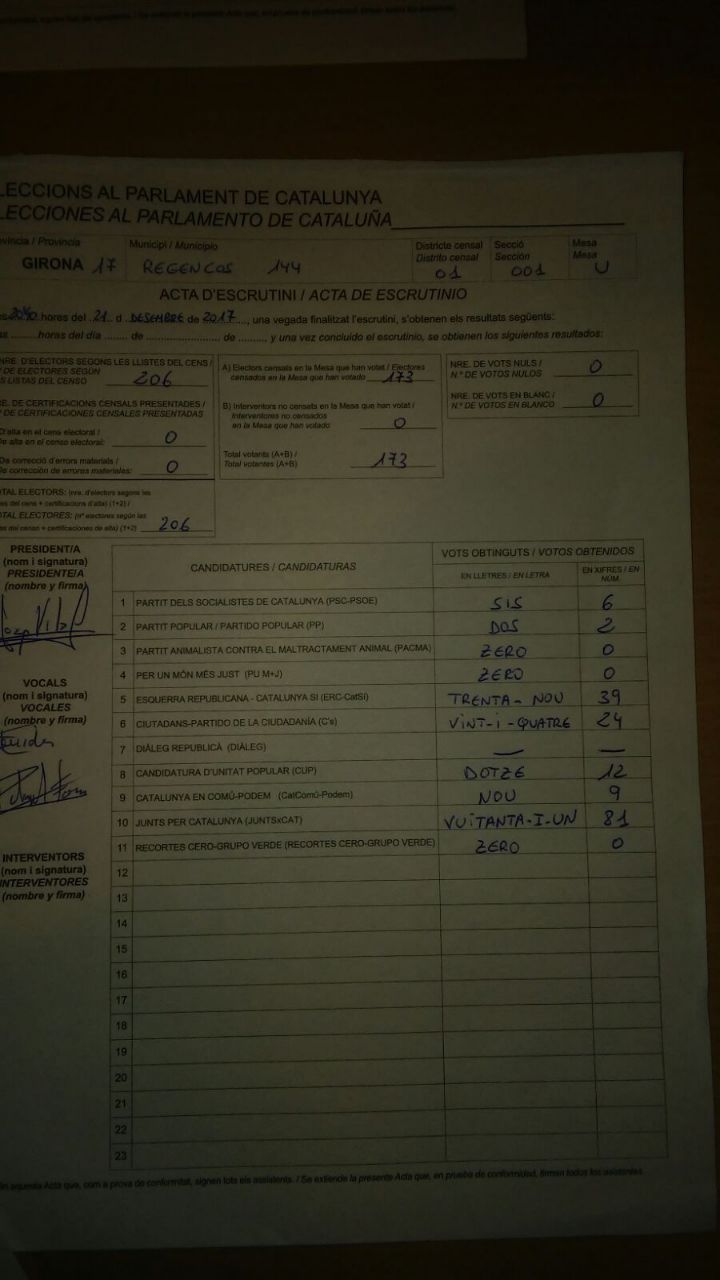 LECCIONS AL PARLAMENT DE CATALUNYA
LECCIONES AL PARLAMENTO DE CATALUÑA
ovíncia / Provincia
GIRONA 17
Municipi / Municipio
REGENCOS 144
Districte censal
Distrito censal
01
Secció
Sección
001
Mesa
Mesa
U
ACTA D'ESCRUTINI / ACTA DE ESCRUTINIO
hores del 21 d DESEMBRE de 2017, una vegada finalitzat l'escrutini, s'obtenen els resultats següents:
horas del día de de y una vez concluido el escrutinio, se obtienen los siguientes resultados:
NRE. D'ELECTORS SEGONS LES LLISTES DEL CENS /
DE ELECTORES SEGÚN
S LISTAS DEL CENSO 206
E. DE CERTIFICACIONS CENSALS PRESENTADES /
DE CERTIFICACIONES CENSALES PRESENTADAS
D'alta en el cens electoral /
De alta en el censo electoral: 0
De correcció d'errors materials /
De corrección de errores materiales: 0
TAL ELECTORS: (nre. d'electors segons les
es del cens + certificacions d'alta) (1+2) /
TAL ELECTORES: (nº electores según las
as del censo + certificaciones de alta) (1+2) 206
A) Electors censals en la Mesa que han votat / Electores
censados en la Mesa que han votado 173
B) Interventors no censats en la Mesa que han votat /
Interventores no censados
en la Mesa que han votado 0
Total votants (A+B) /
Total votantes (A+B) 173
NRE. DE VOTS NULS /
N.º DE VOTOS NULOS 0
NRE. DE VOTS EN BLANC /
N.º DE VOTOS EN BLANCO 0
PRESIDENT/A
(nom i signatura)
PRESIDENTE/A
(nombre y firma)
VOCALS
(nom i signatura)
VOCALES
(nombre y firma)
INTERVENTORS
(nom i signatura)
INTERVENTORES
(nombre y firma)
CANDIDATURES / CANDIDATURAS
VOTS OBTINGUTS / VOTOS OBTENIDOS
EN LLETRES / EN LETRA
EN XIFRES / EN NÚM.
1 PARTIT DELS SOCIALISTES DE CATALUNYA (PSC-PSOE) SIS 6
2 PARTIT POPULAR / PARTIDO POPULAR (PP) DOS 2
3 PARTIT ANIMALISTA CONTRA EL MALTRACTAMENT ANIMAL (PACMA) ZERO 0
4 PER UN MÓN MÉS JUST (PU M+J) ZERO 0
5 ESQUERRA REPUBLICANA - CATALUNYA SI (ERC-CatSí) TRENTA-NOU 39
6 CIUTADANS-PARTIDO DE LA CIUDADANÍA (C's) VINT-I-QUATRE 24
7 DIÀLEG REPUBLICÀ (DIÀLEG) — —
8 CANDIDATURA D'UNITAT POPULAR (CUP) DOTZE 12
9 CATALUNYA EN COMÚ-PODEM (CatComú-Podem) NOU 9
10 JUNTS PER CATALUNYA (JUNTSxCAT) VUITANTA-I-UN 81
11 RECORTES CERO-GRUPO VERDE (RECORTES CERO-GRUPO VERDE) ZERO 0
12
13
14
15
16
17
18
19
20
21
22
23
aquesta Acta que, com a prova de conformitat, signen tots els assistents. / Se extiende la presente Acta que, en prueba de conformidad, firman todos los asistentes.